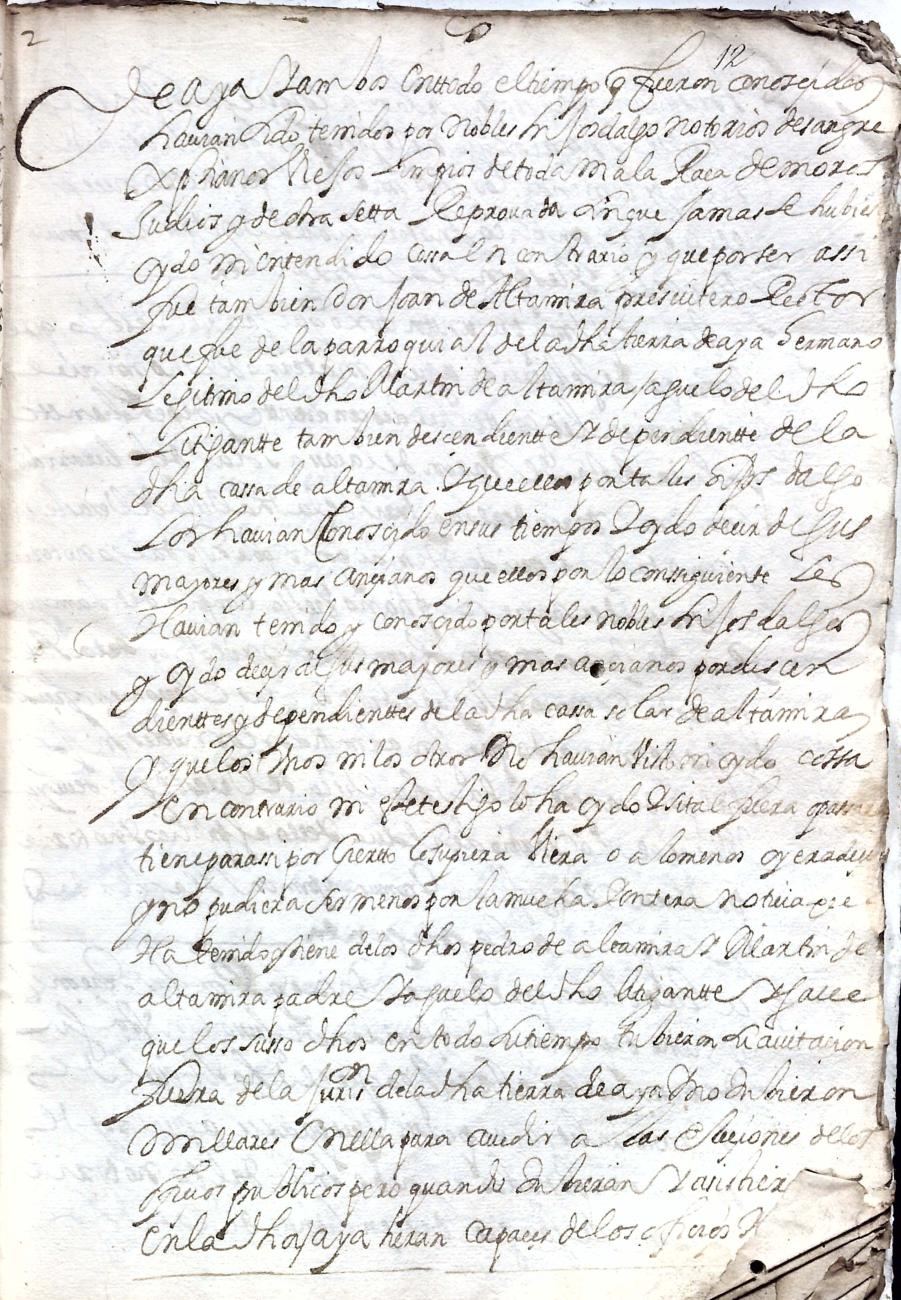 2
12
de aya Y ambos en ttodo el tiempo q fueron conoscidos
havian sido tenidos por nobles hijosdalgo notorios de sangre
Xptianos Viejos limpios de toda mala Raca de moros
Judios y de otra setta Reprovada sin que jamas se hubiese
oydo ni entendido cossa en contrario y que por ser assi
fue tambien Don Joan de Altamira presvitero Rector
que fue de la parroquial de la dha tierra de aya hermano
Legitimo del dho Martin de altamira Aguelo del dho
Litigantte tambien descendientte Y dependientte de la
dha cassa de altamira Y que ellos por tales hijos dalgo
Los havian Conoscido en sus tiempos Y oydo decir de sus
mayores y mas ancianos que ellos por lo consiguiente les
Havian tenido y conoscido por tales nobles hijosdalgo
y oydo decir a sus mayores y mas ancianos por descen
dienttes y dependienttes de la dha cassa solar de altamira
y que los unos ni los otros No havian Visto ni oydo cossa
en contrario ni este testigo lo ha oydo Y si tal fuera
tiene para ssi por Ciertto lo supiera Viera o a lo menos oyera decir
y no pudiera ser menos por la mucha Y entera noticia que
Ha tenido y tiene de los dhos pedro de altamira Y Martin de
altamira padre Y aguelo del dho litigantte Y save
que los susso dhos en todo su tiempo tubieron su avitacion
fuera de la Jurison de la dha tierra de aya Y no tubieron
millares en ella para acudir a las elesiones de los
officios publicos pero quando tubieran Y asistier
en la dha aya heran capaces de los officios Y